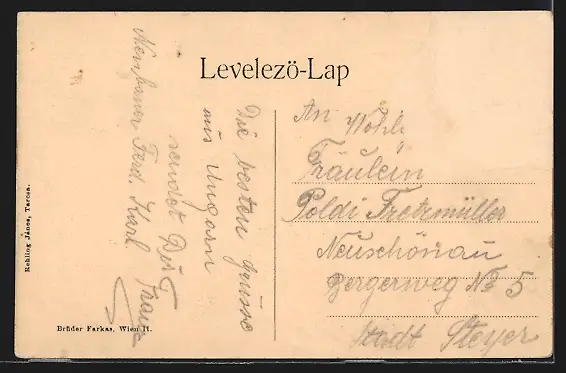 Levelezö-Lap
Die besten grüsse
aus Ungarn
sendet Dir
Ferd. Karl Franz
An Wohl.
Fräulein
Poldi Fretzmüller
Neuschönau
Bergerweg № 5
Stadt Steyer
Rehling János, Tarcsa.
Brüder Farkas, Wien II.